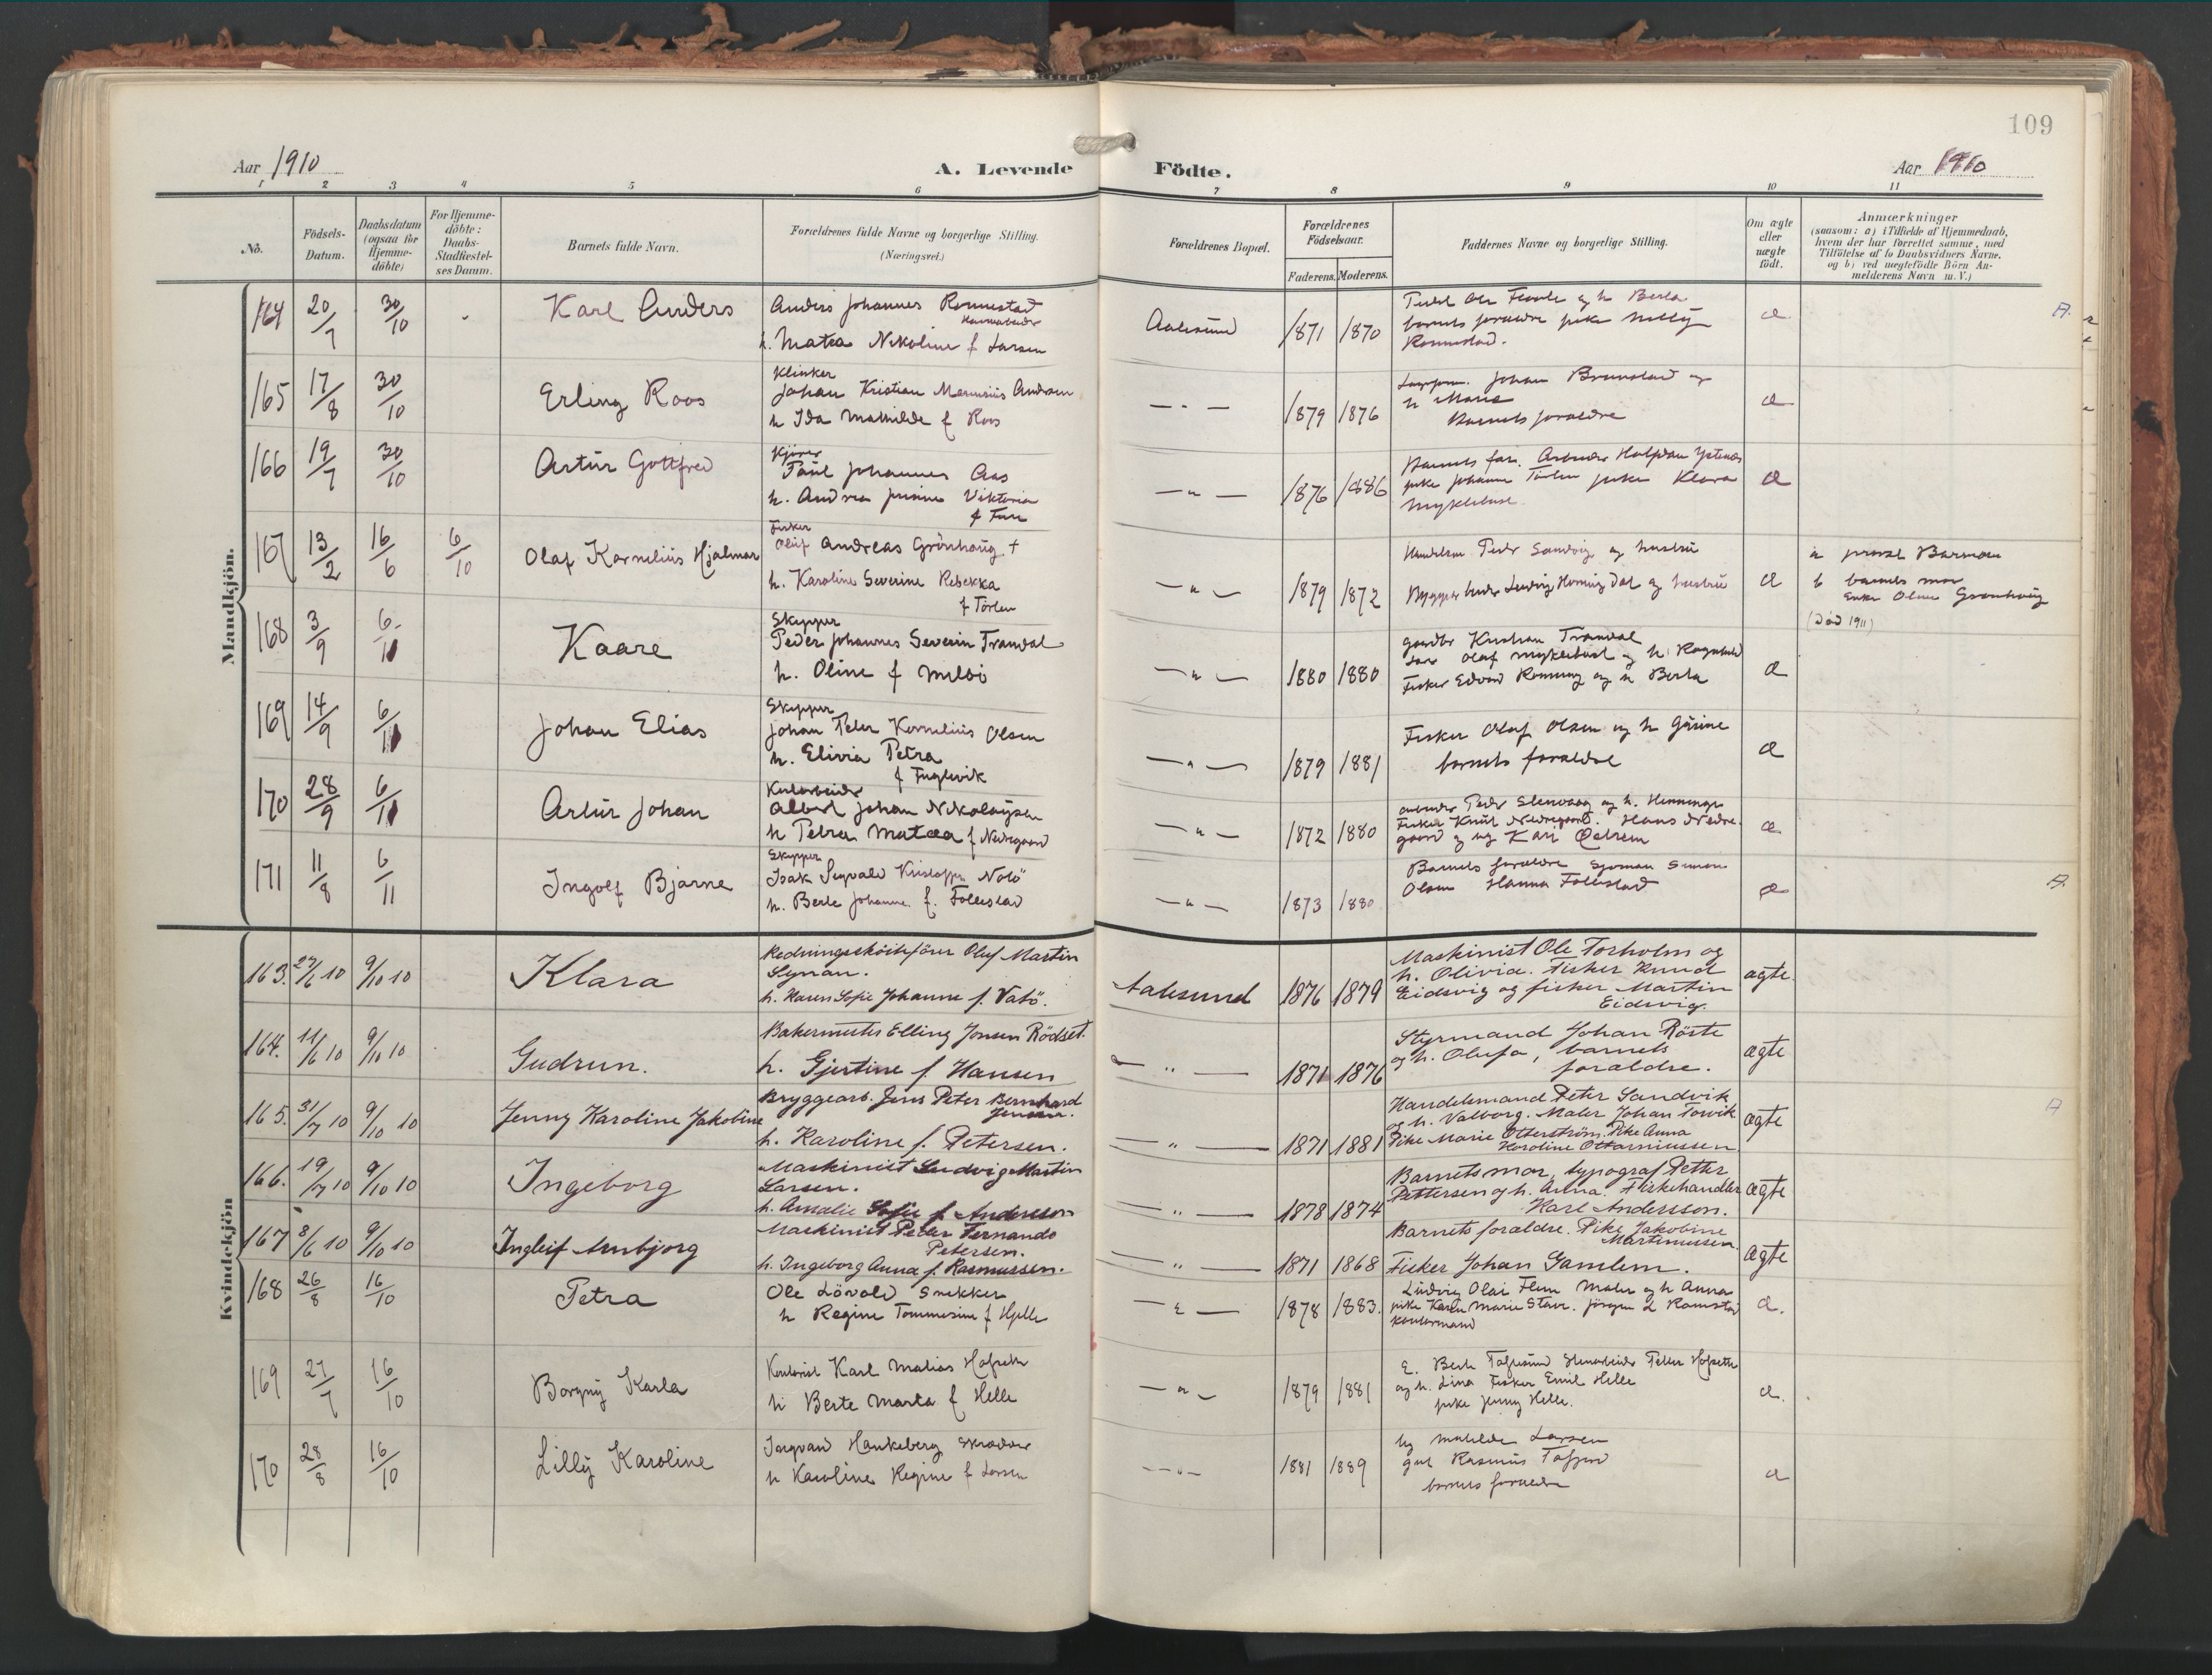 109
Aar 1910
A. Levende Födte.
Aar 1910
1 2 3 4 5 6 7 8 9 10 11
No.
Födsels-Datum.
Daabsdatum (ogsaa for Hjemme-döbte)
For Hjemme-döbte: Daabs-Stadfæstel-ses Datum.
Barnets fulde Navn.
Forældrenes fulde Navne og borgerlige Stilling.
(Næringsvei.)
Forældrenes Bopæl.
Forældrenes Födselsaar.
Faderens. Moderens.
Faddernes Navne og borgerlige Stilling.
Om ægte eller uægte födt.
Anmærkninger
(saasom: a) i Tilfælde af Hjemmedaab,
hvem der har forrettet samme, med
Tilföielse af to Daabsvidners Navne.
og b) ved uægtefödte Börn An-
melderens Navn m. V.)
Mandkjön.
164 20/7 30/10 - Karl Anders
Anders Johannes Ronnestad
h. Matea Nikoline f Larsen
Aalesund 1871 1870
barnets forældre pike Nelly
Ronnestad.
165 17/8 30/10 Erling Roos
Klinker
Johan Kristian Andersen
h Ida Mathilde f Roos
— " — 1879 1876
Johan Brunstad og
h Marie
Barnets forældre
æ
166 19/7 30/10 Artur Gottfred
Kjører
Paul Johannes Aas
h. Andrea Viktoria
f Fure
— " — 1876 1886
Barnets far. Arbeider Halfdan
pike Johanne pike Klara
Myklebust
æ
167 13/2 16/6 6/10 Olaf Kornelius Hjalmar
Fisker
Oluf Andreas Grönhaug †
h. Karoline Severine Rebekka
f Törlen
— " — 1879 1872
Peder Sandvig og hustru
Ludvig Horning Dal og hustru
æ
a prost Barman
b barnets mor
Enke Grönhaug
(Död 1911)
168 3/9 6/11 Kaare
Skipper
Peder Johannes Severin Tranvåal
h. Oline f Melbö
— " — 1880 1880
Kristian
Olaf Myklebust og h. Ragnhild
Fisker Edvard Ronning og h Berta
æ
169 14/9 6/11 Johan Elias
Skipper
Johan Peter Kornelius Olsen
h. Elivia Petra
f Fuglevik
— " — 1879 1881
Fisker Olaf Olsen og h Gusine
barnets forældre
æ
170 28/9 6/11 Artur Johan
Albert Johan Nikolaysen
h Petra Matea f Nedregaard
— " — 1872 1880
arbeider Peder Stenvaag og h. Henninge
Fisker Knut Nedregaard. Hans Nedre-
gaard og ug Kari
æ
171 11/8 6/11 Ingolf Bjarne
Skipper
Isak Sigvald Kristoffer Notö
h. Berte Johanne f. Follestad
— " — 1873 1880
Barnets forældre Sjøman Simon
Olsen Hanna Follestad
æ
Kvindekjön
163. 27/6 10 9/10 10 Klara
Redningsskøitefører Oluf Martin
h. Karen Sofie Johanne f. Vatö.
Aalesund 1876 1879
Maskinist Ole Torholm og
h. Olivia. Fisker Knud
Eidsvig og fisker Martin
Eidsvig.
ægte.
164. 11/6 10 9/10 10 Gudrun.
Bakermester Elling Jonsen Rödset
h. Gjertine f. Hansen
— " — 1871 1876
Styrmand Johan Röste
og h. Olufa, barnets
forældre.
ægte
165. 31/7 10 9/10 10 Jenny Karoline Jakobine
Bryggearb. Jens Peter Bernhard
Jensen.
h. Karoline f. Petersen.
— " — 1871 1881
Handelsmand Peter Sandvik
og h. Valborg. Maler Johan Torvik
Pike Marie Otterström. Pike Anna
Karoline Ottarmiussen
ægte
166. 19/7 10 9/10 10 Ingeborg
Maskinist Ludvig Martin
Larsen.
h. Amalie Sofie f. Andersson
— " — 1878 1874
Barnets mor, typograf Petter
Pettersen og h. Anna. Fiskehandler
Karl Andersson.
ægte
167 8/6 10 9/10 10 Ingleif Arnbjorg
Maskinist Peder Fernando
Petersen.
h. Ingeborg Anna f. Rasmussen.
— " — 1871 1868
Barnets forældre. Pike Jakobine
Martinussen.
Fisker Johan Gamlem.
ægte
168 26/8 16/10 Petra
Ole Lövold Snekker
h Regine Tommesine f Hjelle
— " — 1878 1883.
Ludvig Olai Flem Maler og h Anna
pike Karen Marie Stavr. Jörgen L Ramstad
kontormand
æ.
169 27/7 16/10 Borgny Karla
Kontorist Karl Matias Hofseth
h Berte Marta f Helle
— " — 1879 1881
E. Berte Tafjord Stenarbeider Petter Hofseth
og h. Lina Fisker Emil Helle
pike Jenny Helle.
æ.
170 28/8 16/10 Lilly Karoline
Ingvard Hankeberg Skrædder
h Karoline Regine f Larsen
— " — 1881 1889
ug Matilde Larsen
Rasmus Tafjord
barnets forældre
æ